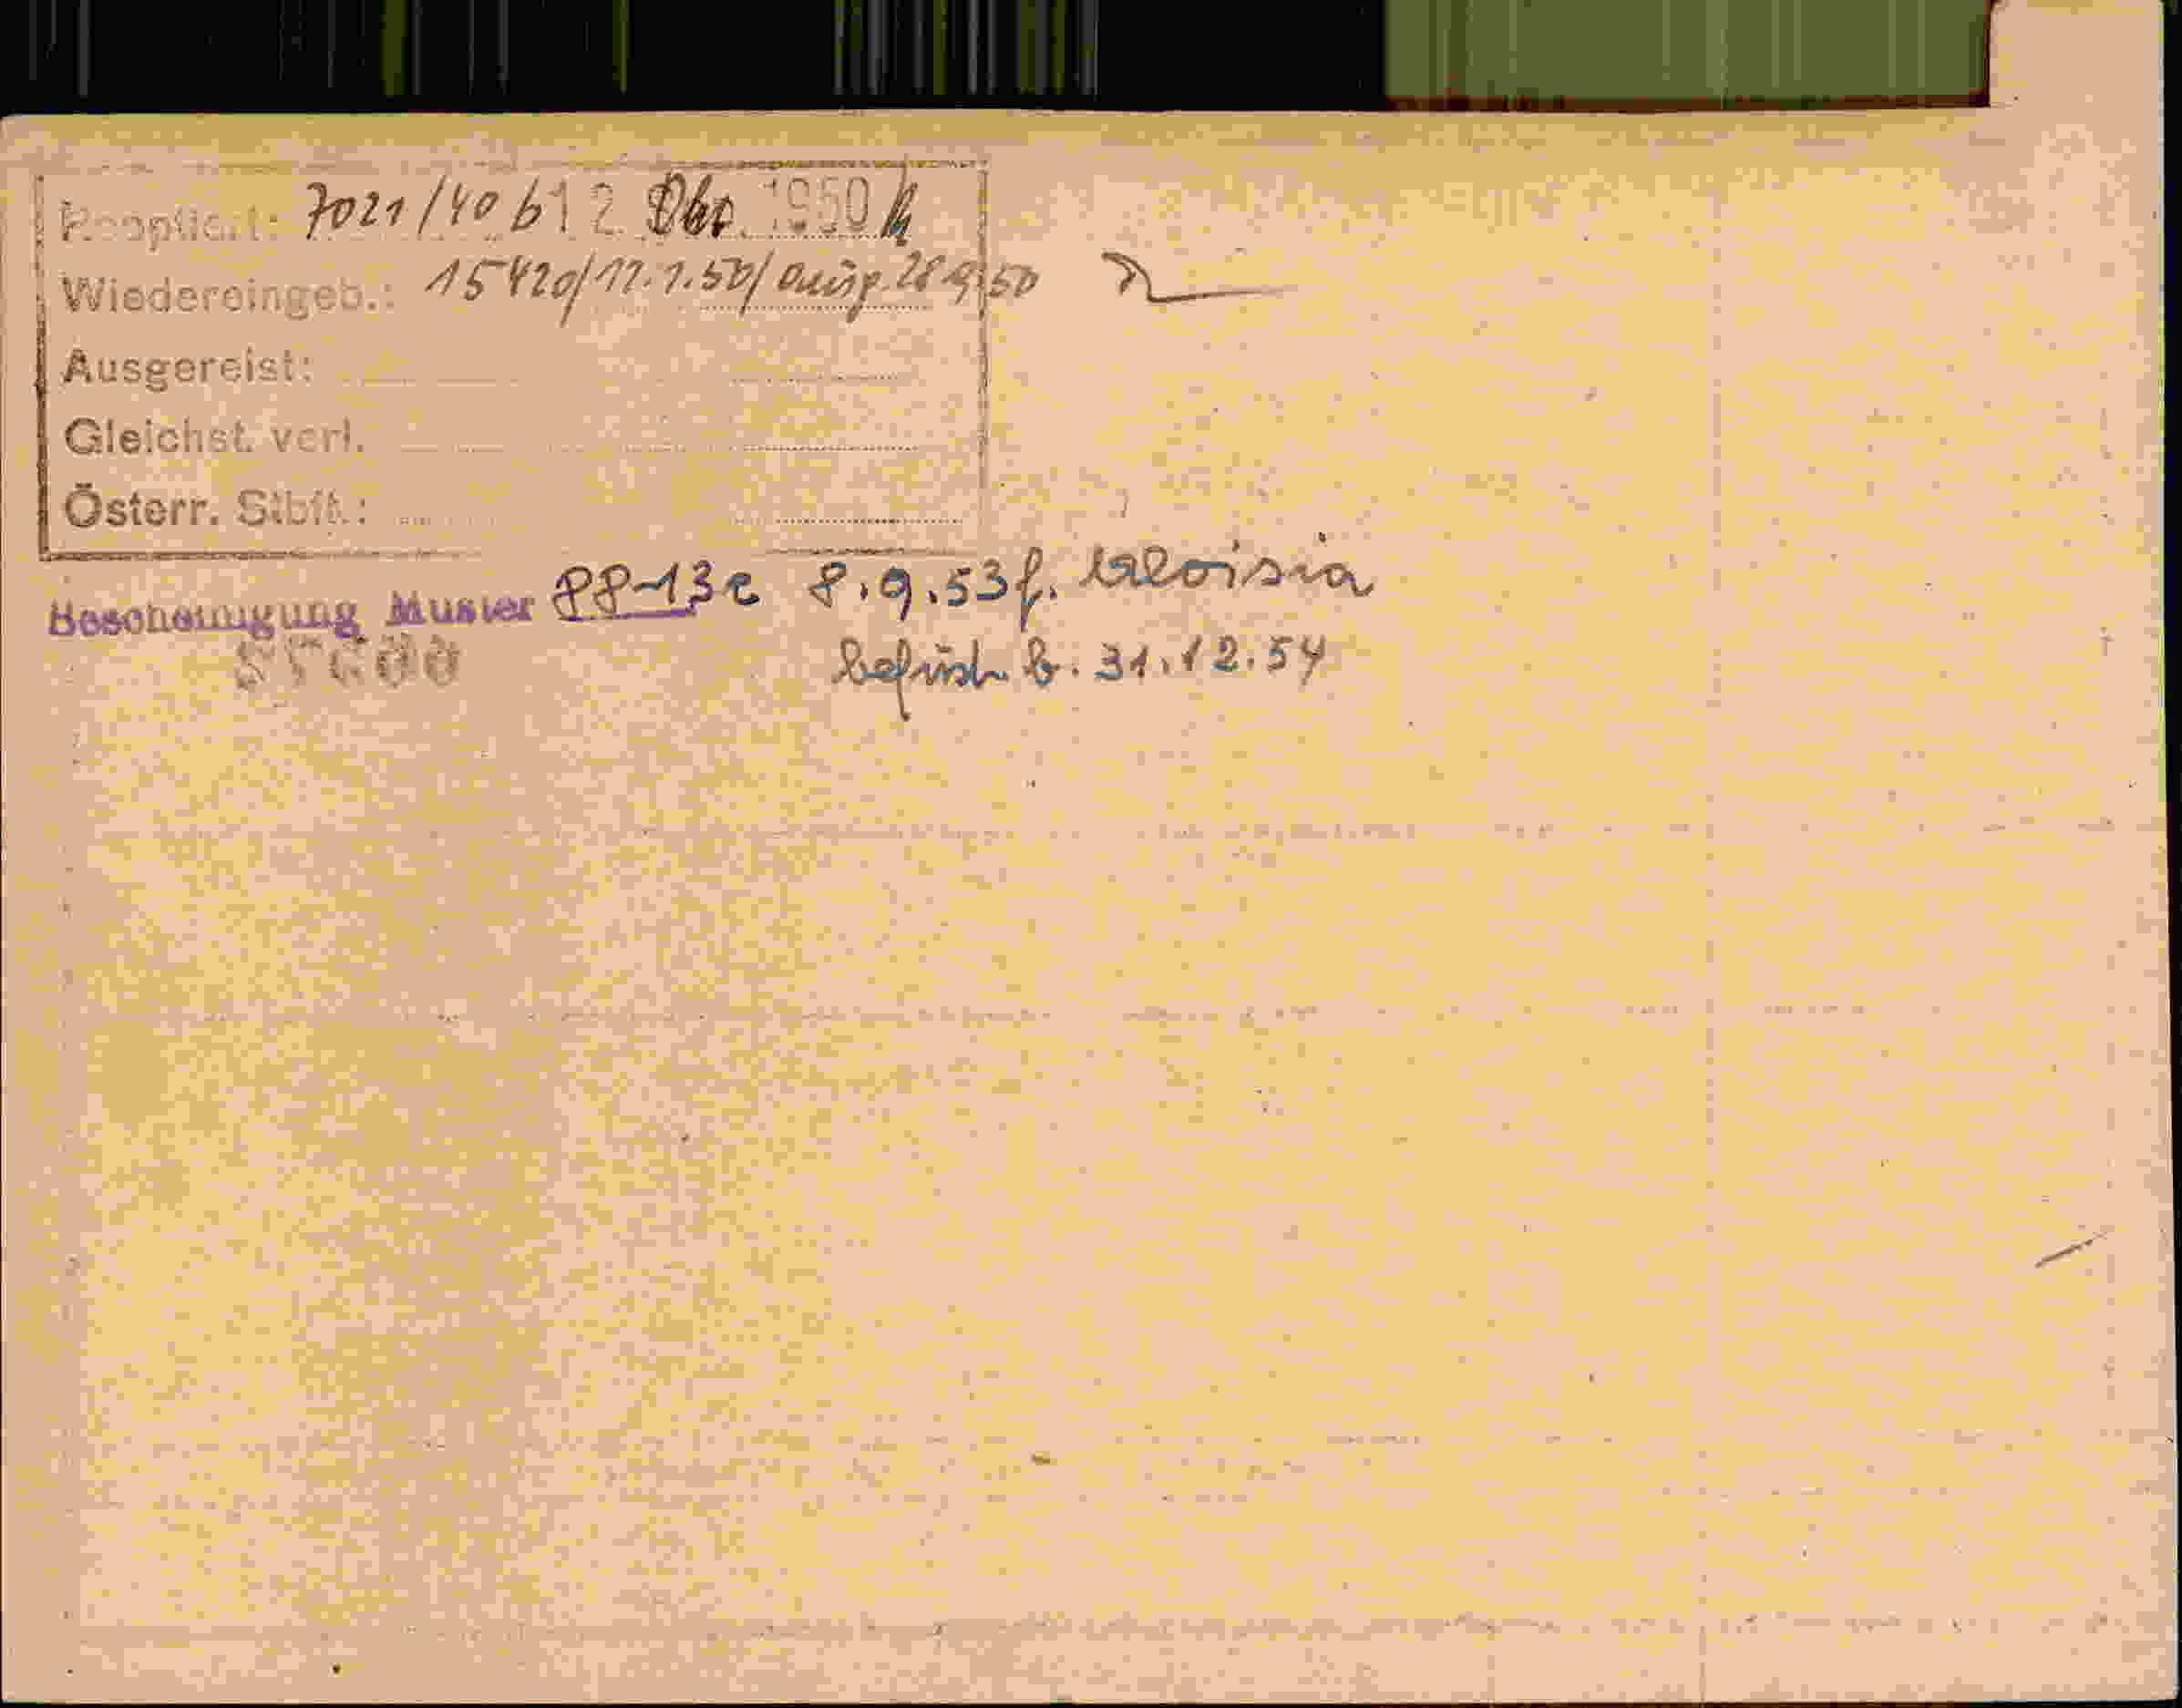 Reoptiert: 7021/40 b 12. Okt. 1950
Wiedereingeb.: 15420/17.1.50/ 28.9.50
Ausgereist:
Gleichst. verl.
Österr. Stbft.:
Bescheinigung Muster 88-13c 8.9.53 f. Aloisia
befrist. b. 31.12.54